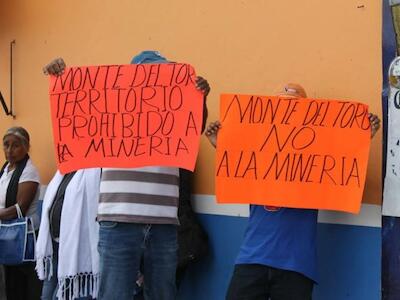 MONTE DEL TORO
TERRITORIO
PROHIBIDO A
LA MINERIA
MONTE DEL TORO
NO
A LA MINERIA